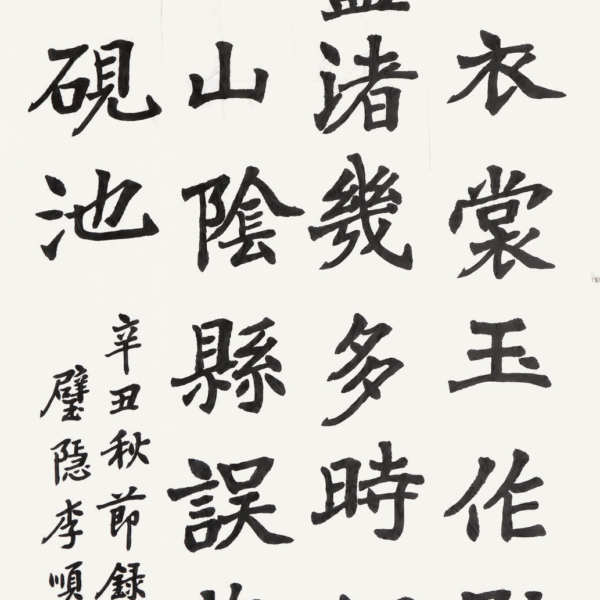 衣裳玉作
渚幾多時
山陰縣誤
硯池
辛丑秋節錄
璧隱李順